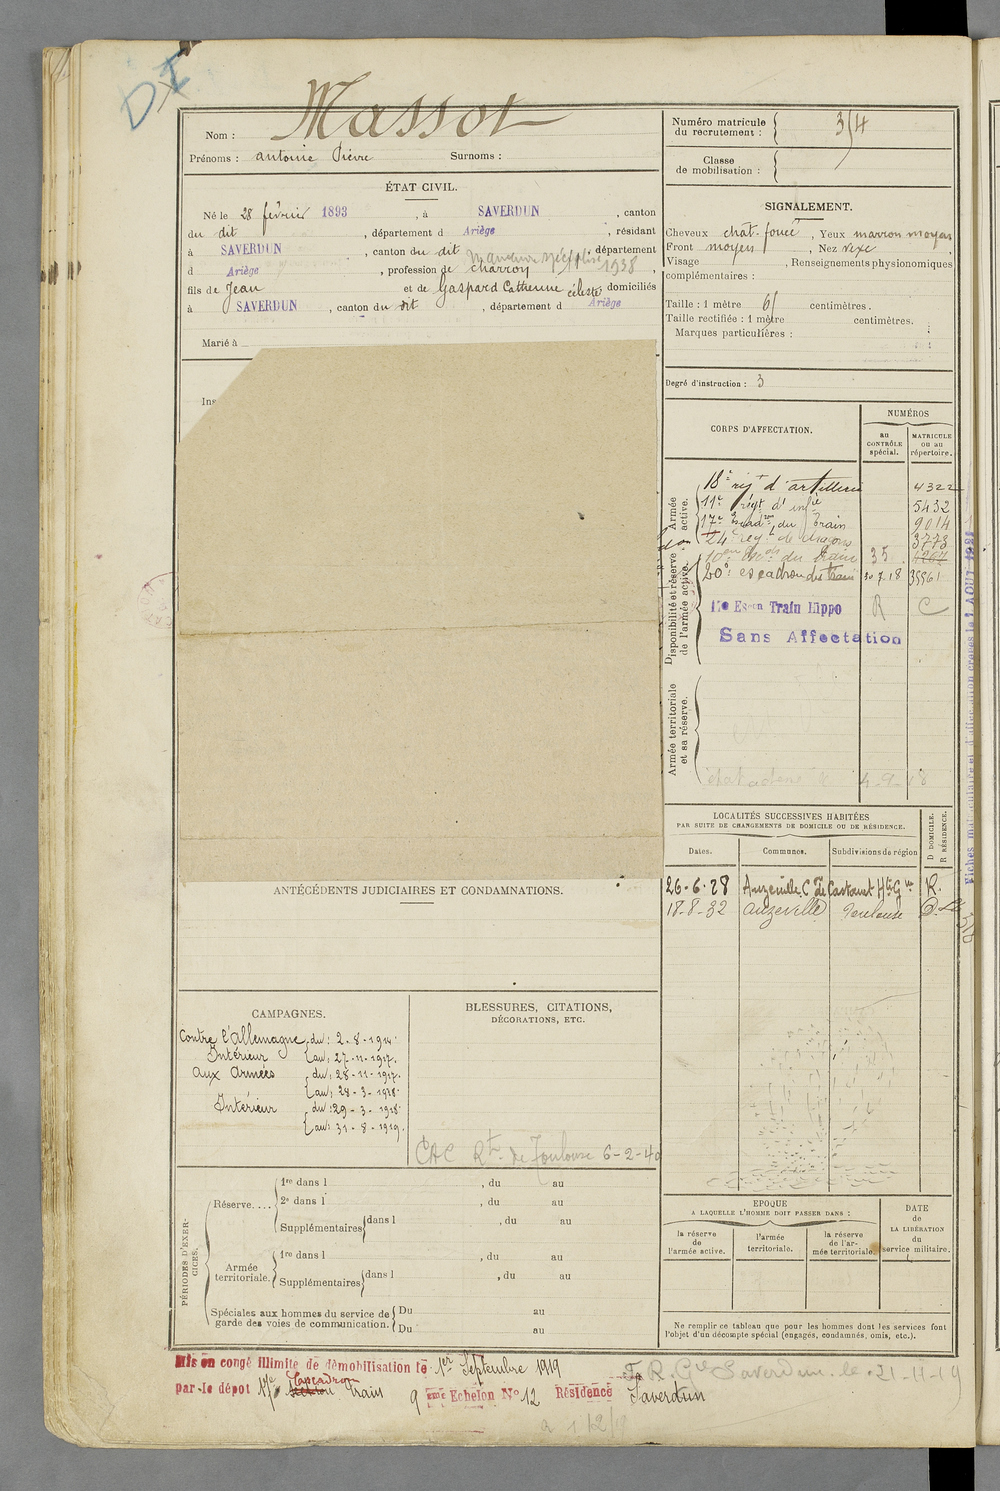 DI
Nom : Massot
Prénoms : antoine Pierre Surnoms :
Numéro matricule du recrutement : 314
Classe de mobilisation :
ÉTAT CIVIL.
Né le 28 février 1893, à SAVERDUN, canton
du dit, département d Ariège, résidant
à SAVERDUN, canton du dit, département
d Ariège, profession de charron
1938
fils de Jean et de Gaspard Catherine céleste, domiciliés
à SAVERDUN, canton du dit, département d Ariège
Marié à
Ins
SIGNALEMENT.
Cheveux chât. foncé, Yeux marron moyen
Front moyen, Nez vexe
Visage , Renseignements physionomiques
complémentaires :
Taille : 1 mètre 61 centimètres.
Taille rectifiée : 1 mètre centimètres.
Marques particulières :
Degré d'instruction : 3
CORPS D'AFFECTATION.
NUMÉROS
au CONTRÔLE spécial.
MATRICULE ou au répertoire.
Armée active.
18e régt d'artillerie 4322
11e régt d'infie 5432
17e Escadon du train 9014
24e régt de dragons 3773
Disponibilité et réserve de l'armée active.
du train 35
20e escadron du train 30-7-18 35561
17e Escon Train Hippo R C
Sans Affectation
Armée territoriale et sa réserve.
4-9-18
LOCALITÉS SUCCESSIVES HABITÉES
PAR SUITE DE CHANGEMENTS DE DOMICILE OU DE RÉSIDENCE.
Dates. Communes. Subdivisions de région D DOMICILE. R RÉSIDENCE.
26-6-28 Auzeville Cton de Castanet Hte Gne R.
18-8-32 Auzeville Toulouse D.
ANTÉCÉDENTS JUDICIAIRES ET CONDAMNATIONS.
CAMPAGNES.
Contre l'allemagne du : 2-8-1914
Intérieur au : 27-11-1917.
aux Armées du : 28-11-1917.
au : 28-3-1918.
Intérieur du : 29-3-1918.
au : 31-8-1919.
BLESSURES, CITATIONS,
DÉCORATIONS, ETC.
CAC Rt de Toulouse 6-2-40
PÉRIODES D'EXERCICES.
Réserve....
1re dans l , du au
2e dans l , du au
Supplémentaires dans l , du au
Armée territoriale.
1re dans l , du au
Supplémentaires dans l , du au
Spéciales aux hommes du service de garde des voies de communication.
Du au
Du au
EPOQUE
A LAQUELLE L'HOMME DOIT PASSER DANS :
la réserve de l'armée active.
l'armée territoriale.
la réserve de l'armée territoriale.
DATE de LA LIBÉRATION du service militaire.
Ne remplir ce tableau que pour les hommes dont les services font
l'objet d'un décompte spécial (engagés, condamnés, omis, etc.).
Mis en congé illimité de démobilisation le 1er Septembre 1919
par le dépôt 17e Escadron train 9 eme Echelon N° 12 Résidence Saverdun
R. Gie Saverdun le 21-11-19